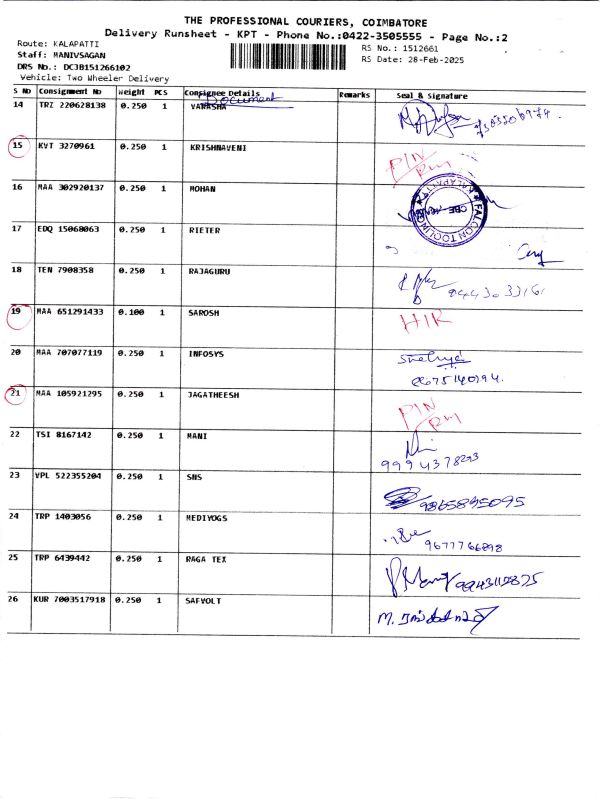 THE PROFESSIONAL COURIERS, COIMBATORE
Delivery Runsheet - KPT - Phone No.:0422-3505555 - Page No.:2
Route: KALAPATTI
Staff: MANIVSAGAN
DRS No.: DC3B151266102
Vehicle: Two Wheeler Delivery
RS No.: 1512661
RS Date: 28-Feb-2025
S No Consignment No Weight PCS Consignee Details Remarks Seal & Signature
Document
14 TRZ 220628138 0.250 1 VARASHA
15 KVT 3270961 0.250 1 KRISHNAVENI PIN
16 MAA 302920137 0.250 1 MOHAN
FALCON TOOLING
17 EDQ 15068063 0.250 1 RIETER
18 TEN 7908358 0.250 1 RAJAGURU
19 MAA 651291433 0.100 1 SAROSH
20 MAA 707077119 0.250 1 INFOSYS
21 MAA 105921295 0.250 1 JAGATHEESH PIN
22 TSI 8167142 0.250 1 MANI
9994378293
23 VPL 522355204 0.250 1 SNS
9865895095
24 TRP 1403056 0.250 1 MEDIYOGS
9677766898
25 TRP 6439442 0.250 1 RAGA TEX
26 KUR 7003517918 0.250 1 SAFVOLT